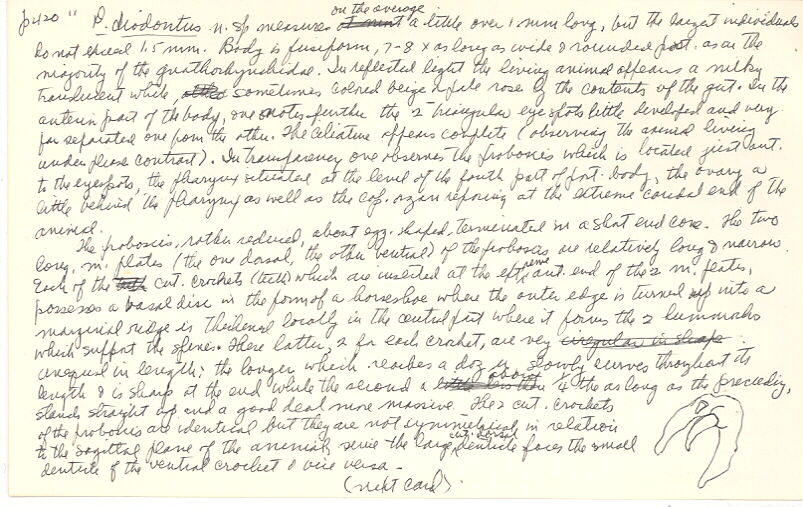 p420 " P. diodontus n. sp measures on the average a little over 1 mm long, but the largest individuals
do not exceed 1.5 mm. Body is fusiform, 7-8 x as long as wide & rounded post. as in the
majority of the gnathorhynchidae. In reflected light the living animal appears a milky
translucent white, sometimes colored beige or pale rose by the contents of the gut. In the
anterior part of the body, one notes further the 2 triangular eyespots little developed and very
far separated one from the other. The ciliature appears complete (observing the animal living
under phase contrast). In transparency one observes the proboscis which is located just ant.
to the eyespots, the pharynx situated at the level of the fourth part of post. body, the ovary a
little behind the pharynx as well as the cop. organ reposing at the extreme caudal end of the
animal.
The proboscis, rather reduced, about egg-shaped, terminated in a short end cone. The two
long. m. plates (the one dorsal, the other ventral) of the proboscis are relatively long & narrow.
Each of the cut. crochets (teeth) which are inserted at the extreme ant. end of the 2 m. plates,
possesses a basal disc in the form of a horseshoe where the outer edge is turned up into a
marginal ridge is thickened locally in the central part where it forms the 2 hummocks
which support the spines. These latter, 2 for each crochet, are very irregular in shape
unequal in length; the longer which reaches a doz µ, slowly curves throughout its
length & is sharp at the end while the second about 1/4 the as long as the preceding,
stands straight up and a good deal more massive. The 2 cut. crochets
of the proboscis are identical but they are not symmetrical in relation
to the sagittal plane of the animal, since the large dorsal denticle faces the small
denticle of the ventral crochet & vice versa.
(next card).